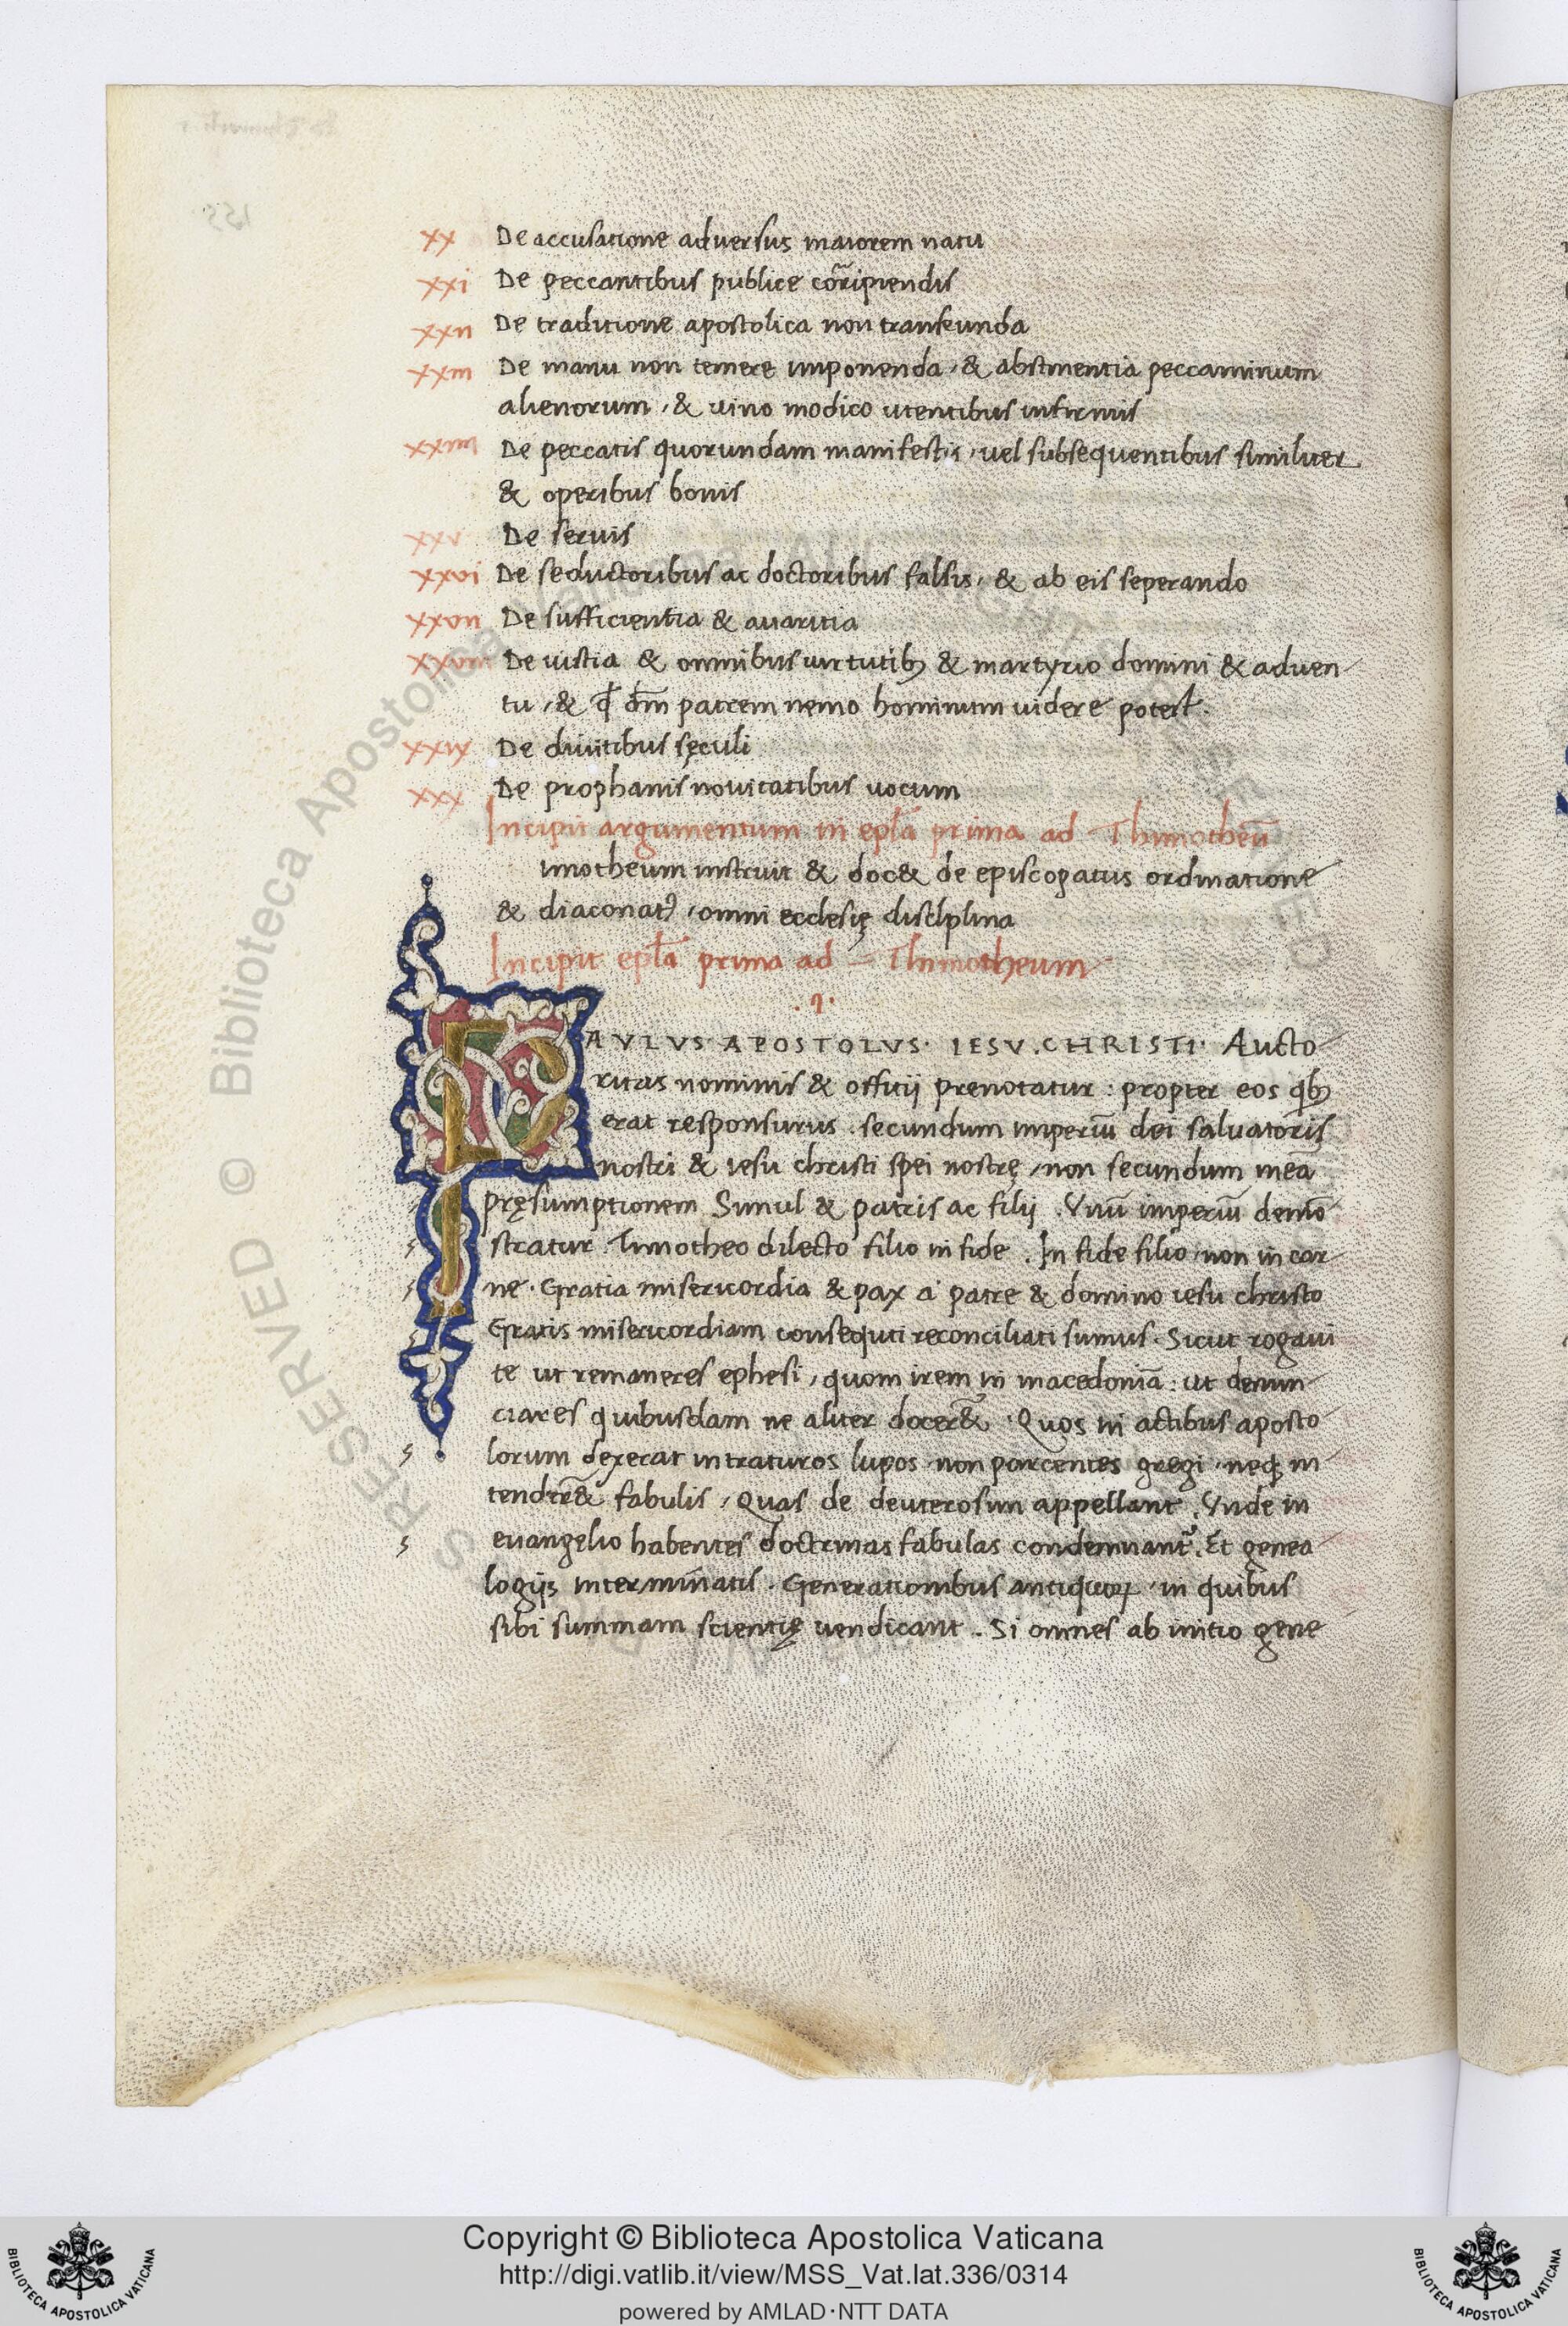 xx De accusatione adversus maiorem natu
xxi De peccantibus publice corripiendis
xxii De traditione apostolica non transeunda
xxiii De manu non temere imponenda, & abstinentia peccaminum
alienorum, & vino modico utentibus infirmis
xxiiii De peccatis quorundam manifestis, vel subsequentibus similiter
& operibus bonis
xxv De servis
xxvi De seductoribus ac doctoribus falsis, & ab eis seperando
xxvii De sufficientia & avaritia
xxviii De iustia & omnibus virtutibꝫ & martyrio domini & adven-
tu, & ꝙ dm̄ patrem nemo hominum videre potest.
xxix De divitibus sęculi
xxx De prophanis novitatibus vocum
Incipit argumentum in epl̄a prima ad Thimotheū
imotheum instruit & doc& de episcopatus ordinatione
& diaconatꝰ, omni ecclesię disciplina
Incipit epl̄a prima ad – Thimotheum
.1.
PAVLVS APOSTOLVS. IESV. CHRISTI. Aucto-
ritas nominis & offitij prenotatur: propter eos qͥbꝫ
erat responsurus. secundum imperiū dei salvatoris
nostri & iesu christi spei nostrę, non secundum meā
pręsumptionem Simul & patris ac filij. Vnū imperiū demō-
stratur. Timotheo dilecto filio in fide. In fide filio, non in car-
ne. Gratia misericordia & pax a patre & domino iesu christo
Gratis misericordiam consequti reconciliati sumus. Sicut rogavi
te ut remaneres ephesi, quom irem in macedoniā: ut denun-
ciares quibusdam ne aliter docer&̄. Quos in actibus aposto-
lorum dexerat intraturos lupos non parcentes gregi, neqꝫ in-
tender&̄ fabulis, Quas de deuterosim appellant. Vnde in
euangelio habentes doctrinas fabulas condemnant᷑. Et genea-
logijs interminatis. Generationibus antiquoꝝ, in quibus
sibi summam scientię vendicant. Si omnes ab initio gene-
Copyright © Biblioteca Apostolica Vaticana
http://digi.vatlib.it/view/MSS_Vat.lat.336/0314
powered by AMLAD·NTT DATA